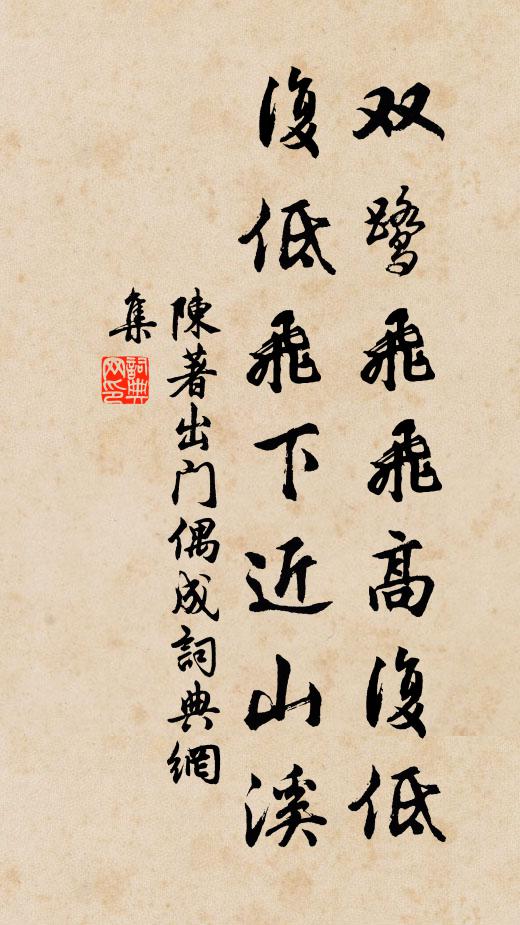 双鹭飛飛高復低
復低飛下近山溪
陳著出門偶成詞典網
集
詞典
网印